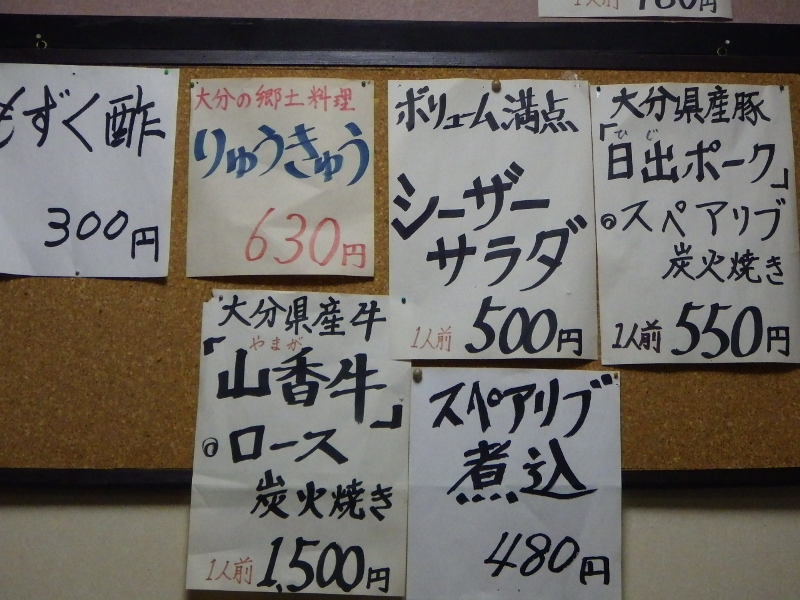 1人前 780円
もずく酢
300円
大分の郷土料理
りゅうきゅう
630円
ボリューム満点
シーザー
サラダ
1人前 500円
大分県産豚
ひじ
「日出ポーク」
のスペアリブ
炭火焼き
1人前 550円
大分県産牛
やまが
「山香牛」
のロース
炭火焼き
1人前 1,500円
スペアリブ
煮込
480円